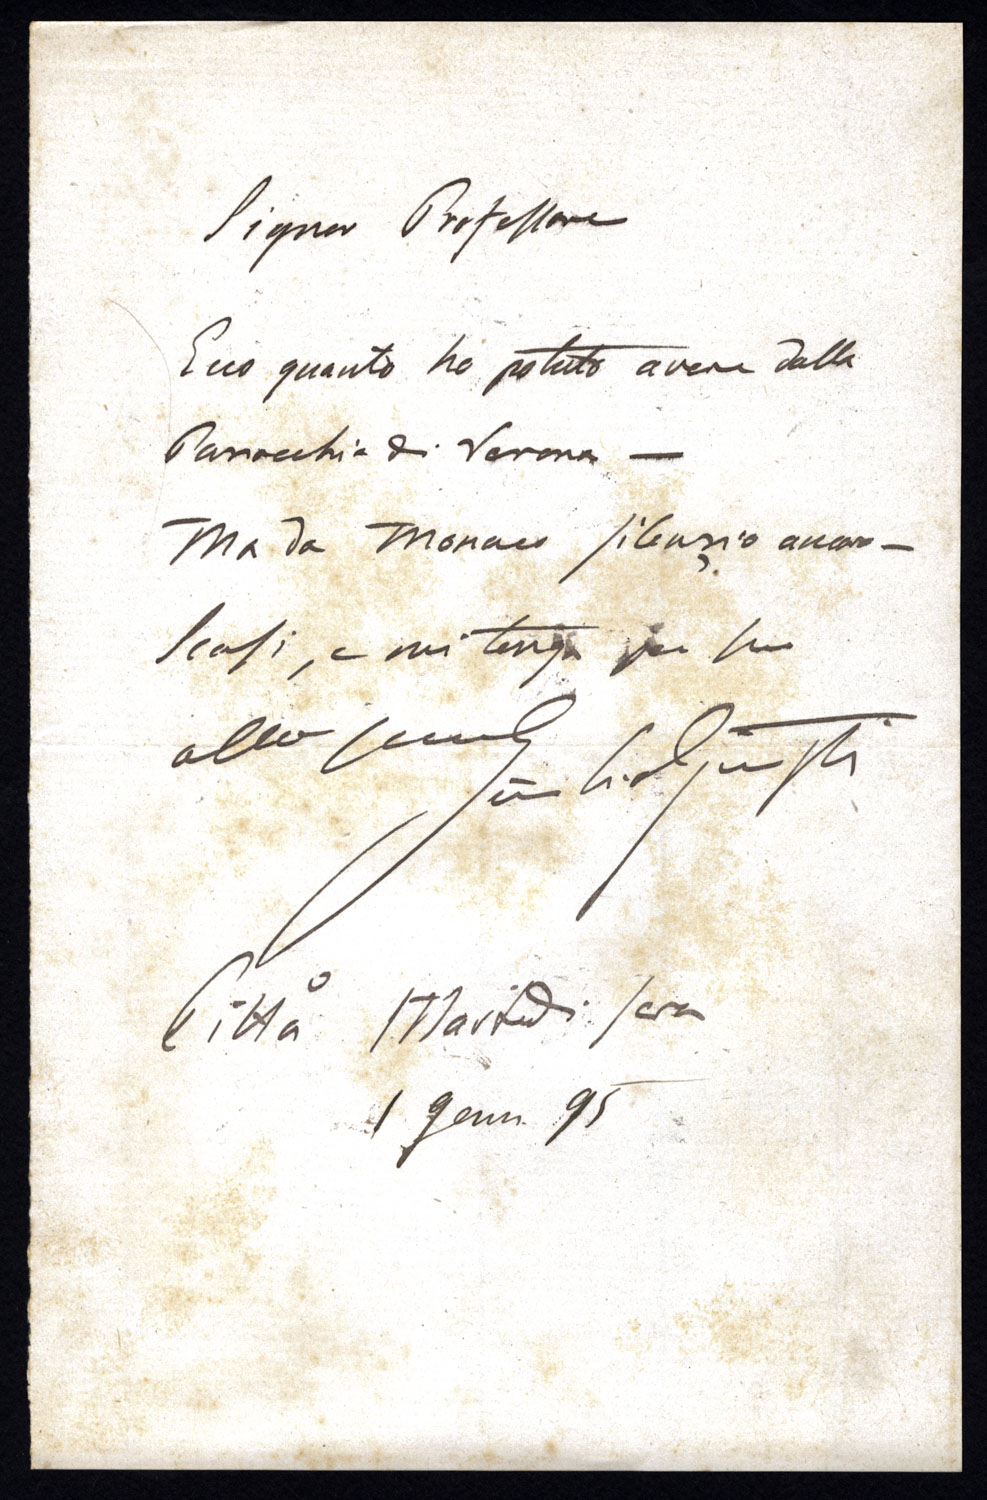 Signor Professore
Ecco quanto ho potuto avere dalla
Parrocchia di Verona —
Ma da Monaco silenzio ancora —
Scusi, e mi tenga per suo
Città Martedi sera
1 genn. 95